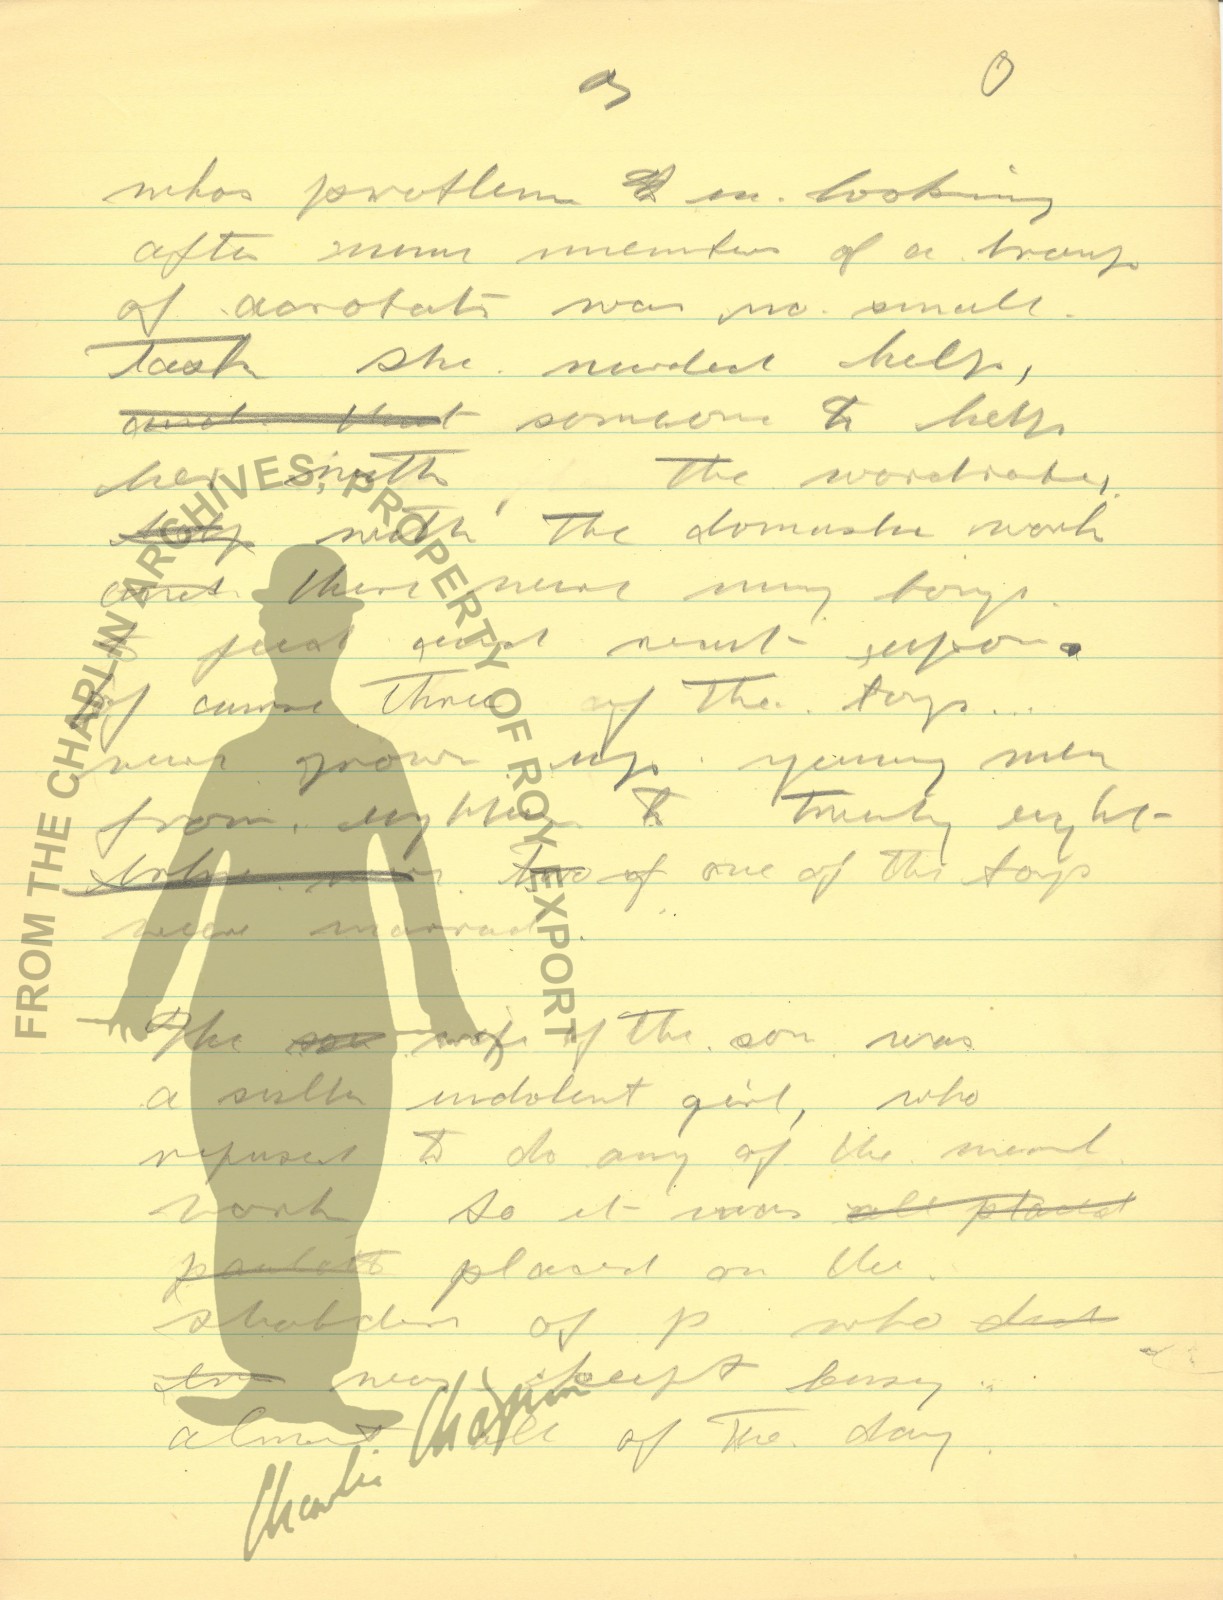 whos problem in looking
after members of a troup
of acrobats was no small
Task she needed help,
and that someone to help
her with the wardrobe,
with the domestic work
and there were many boys.
of course three of the boys...
were grown up young men
from eighteen to twenty eight
two of one of the boys
were married.
The son wife of the son was
a sullen indolent girl, who
refused to do any of the menial
work so it was all placed
placed on the
of p who
was kept busy
almost all of the day.
FROM THE CHAPLIN ARCHIVES, PROPERTY OF ROY EXPORT
Charlie Chaplin